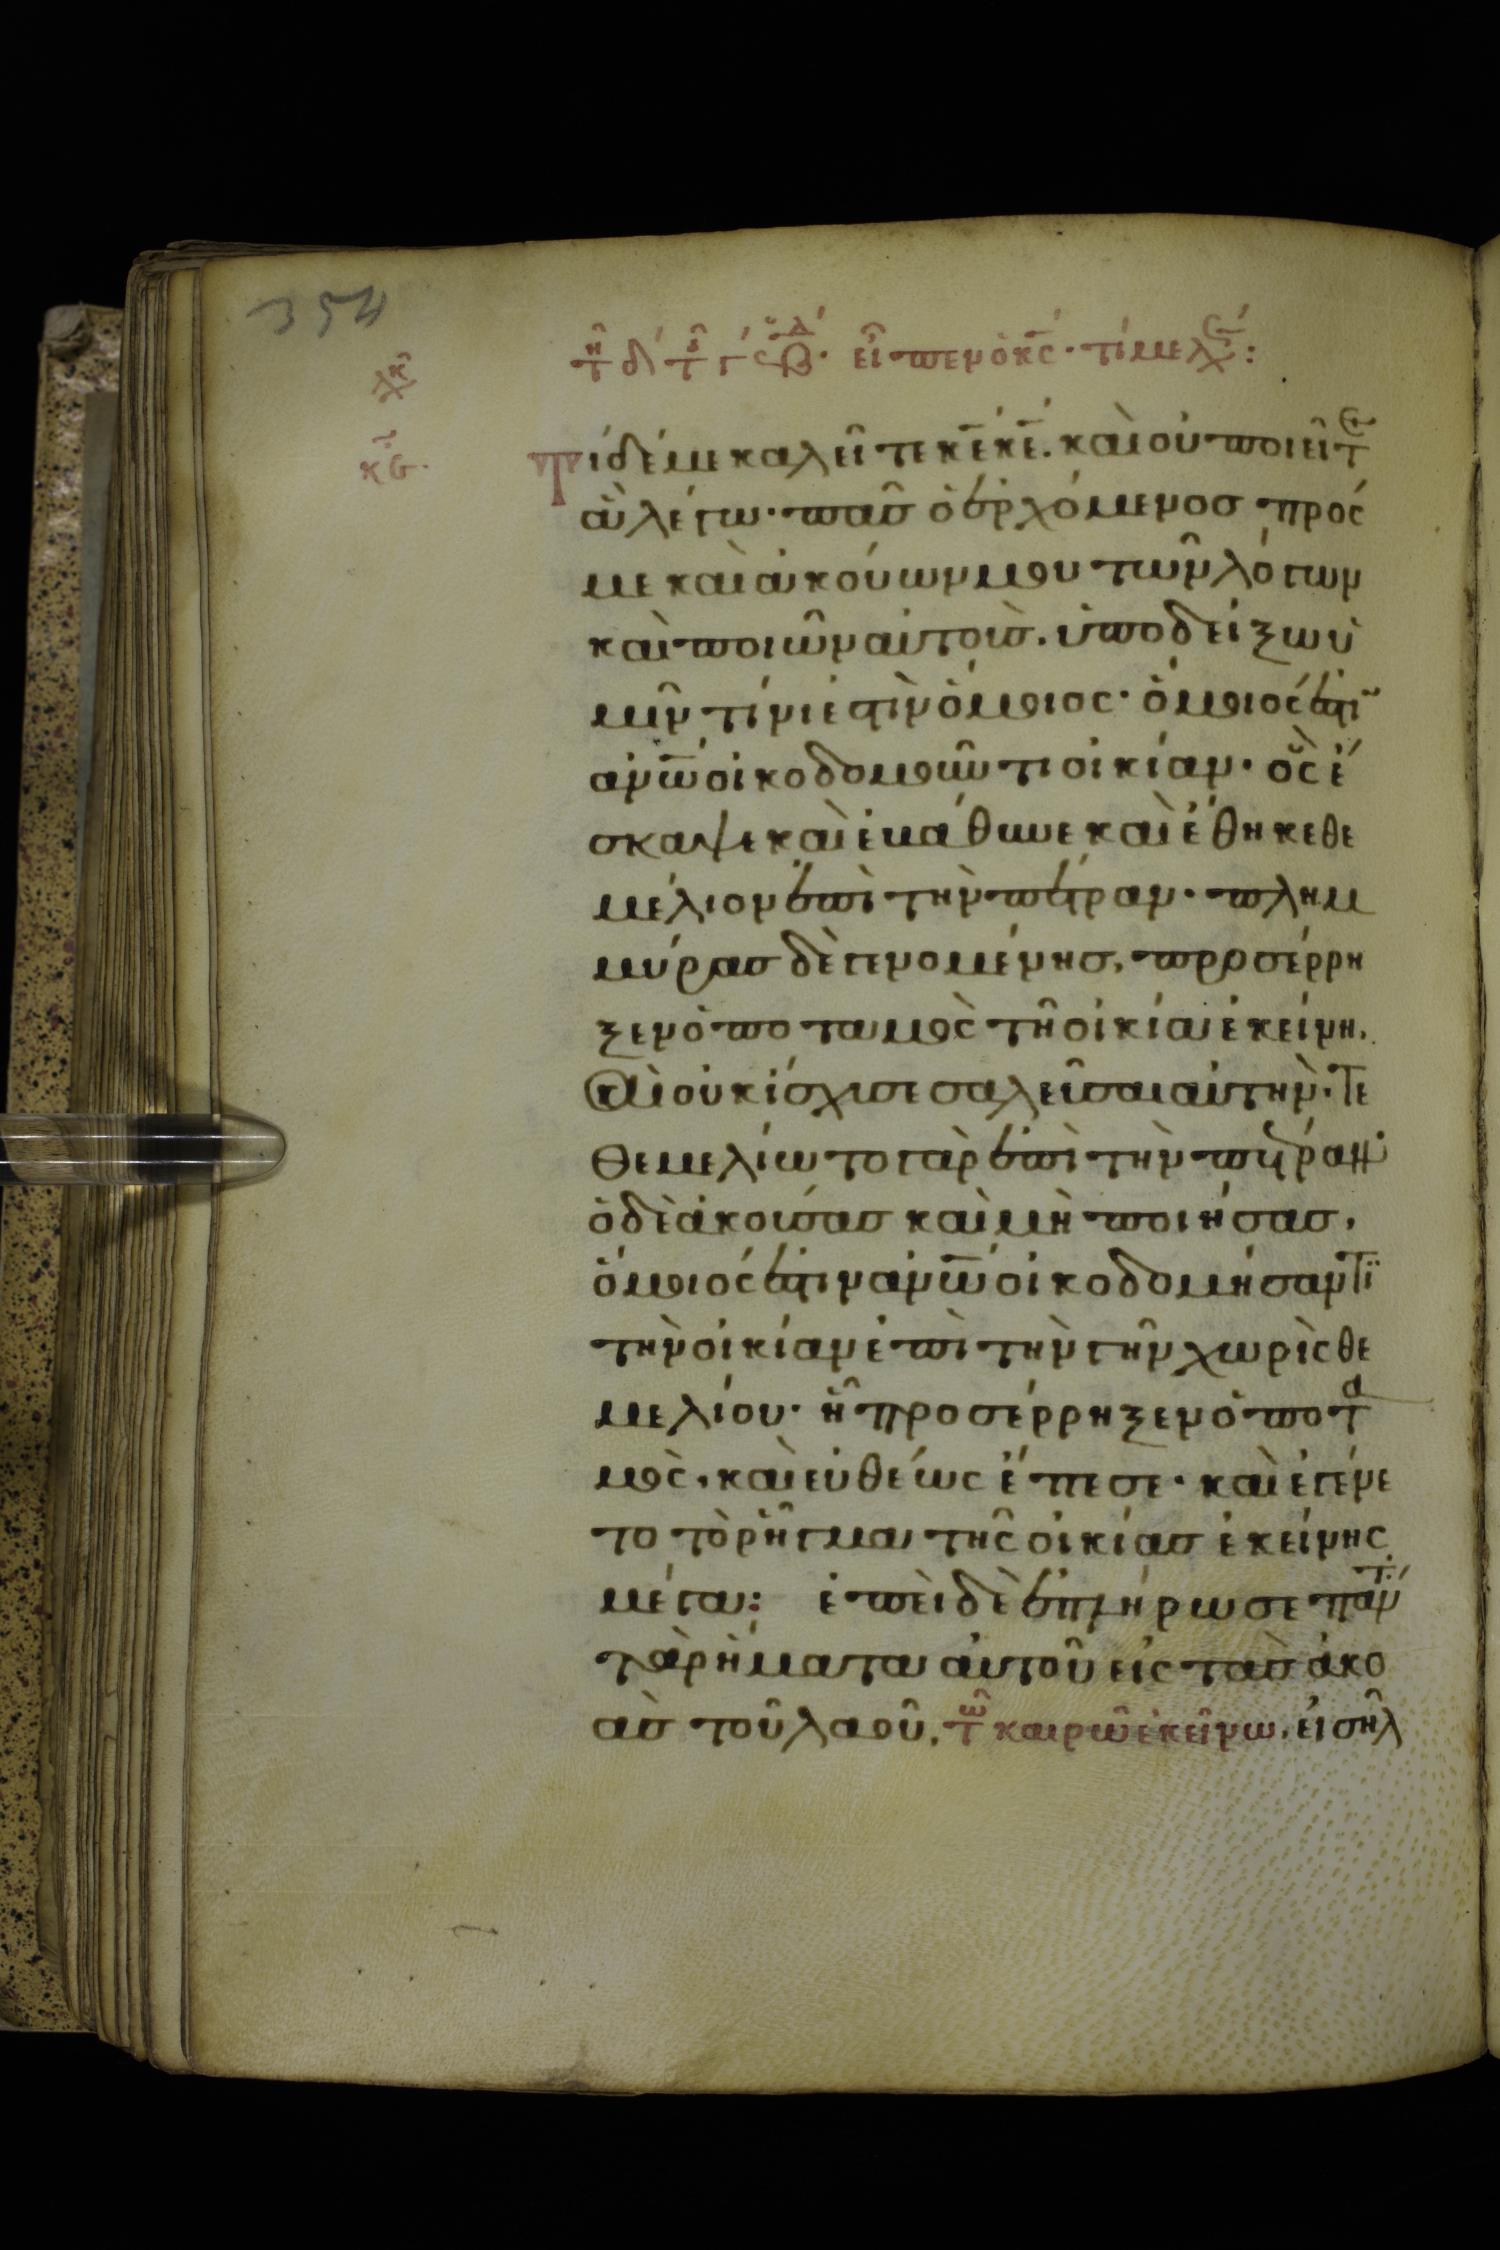 354
τῆ δ' τῆς γ' εβδ. εἶπεν ὁ κς· τί με λ:
Τί δέ με καλεῖτε κε κε. καὶ οὐ ποιεῖτε
ἃ λέγω· πᾶσ ὁ ἐρχόμενοσ πρός
με καὶ ἀκούων μου τῶν λόγων
καὶ ποιῶν αὐτοὺσ. ὑποδείξω ὑ
μῖν τίνι ἐστὶν ὅμοιος· ὅμοιός ἐστι
ανω οἰκοδομοῦντι οἰκίαν· ὃς ἔ
σκαψε καὶ ἐβάθυνε καὶ ἔθηκε θε
μέλιον ἐπὶ τὴν πέτραν· πλημ
μύρασ δὲ γενομένησ, προσέρρη
ξεν ὁ ποταμὸς τῆ οἰκία ἐκείνη.
Καὶ οὐκ ἴσχυσε σαλεῦσαι αὐτὴν· τε
θεμελίωτο γὰρ ἐπὶ τὴν πέτραν·
ὁ δὲ ἀκούσασ καὶ μὴ ποιήσασ,
ὅμοιός ἐστιν ανω οἰκοδομήσαντι
τὴν οἰκίαν ἐπὶ τὴν γῆν χωρὶς θε
μελίου· ἧ προσέρρηξεν ὁ ποτα
μὸς, καὶ εὐθέως ἔπεσε· καὶ ἐγένε
το τὸ ρῆγμα τῆς οἰκίασ ἐκείνης
μέγα: ἐπεὶ δὲ ἐπλήρωσε πάντ
τὰ ρήματα αὐτοῦ εἰς τὰσ ἀκο
ὰσ τοῦ λαοῦ, τῶ καιρῶ ἐκείνω, εἰσῆλ